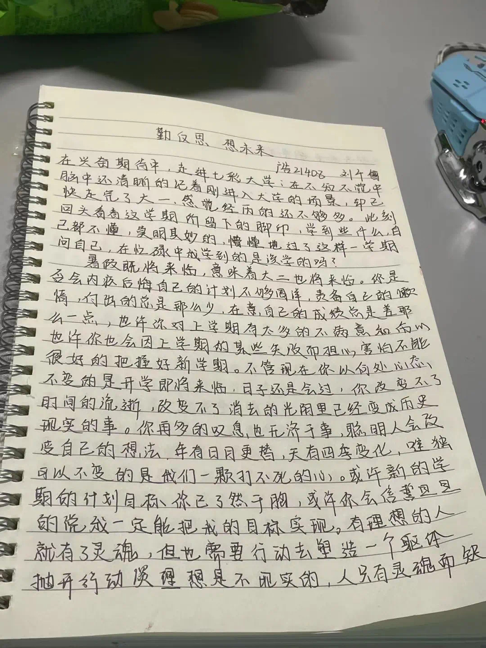 勤反思 想未来
治21408 刘
在兴奋期待中,走进七彩大学;在不知不觉中
脑中还清晰的记着刚进入大学的场景,却已
快走完了大一,感觉经历的还不够多。此刻
回头看看这学期所留下的脚印,学到些什么,自
己都不懂,莫明其妙的,懵懂地过了这样一学期
问自己,在忙碌中我学到的是该学的吗?
暑假既将来临,意味着大二也将来临。你是
否会内疚后悔自己的计划不够周详,责备自己的懒
惰,付出的总是那么少,在意自己的成绩总是差那
么一点,也许你对上学期有太多的不满意和
也许你也会因上学期的某些失败而担心,害怕不能
很好的把握好新学期。不管现在你以何处心态,
不变的是开学即将来临,日子还是会过,你改变不了
时间的流逝,改变不了消去的光阴里已经变成历史
现实的事。你再多的叹息也无济于事,聪明人会改
变自己的想法 年有日月更替,天有四季变化,唯独
可以不变的是他们一颗打不死的心。或许新的学
期的计划目标你已了然于胸,或许你会信誓旦旦
的说我一定能把我的目标实现。有理想的人
就有了灵魂,但也需要行动去塑造一个躯体
抛开行动谈理想是不现实的,人只有灵魂而缺